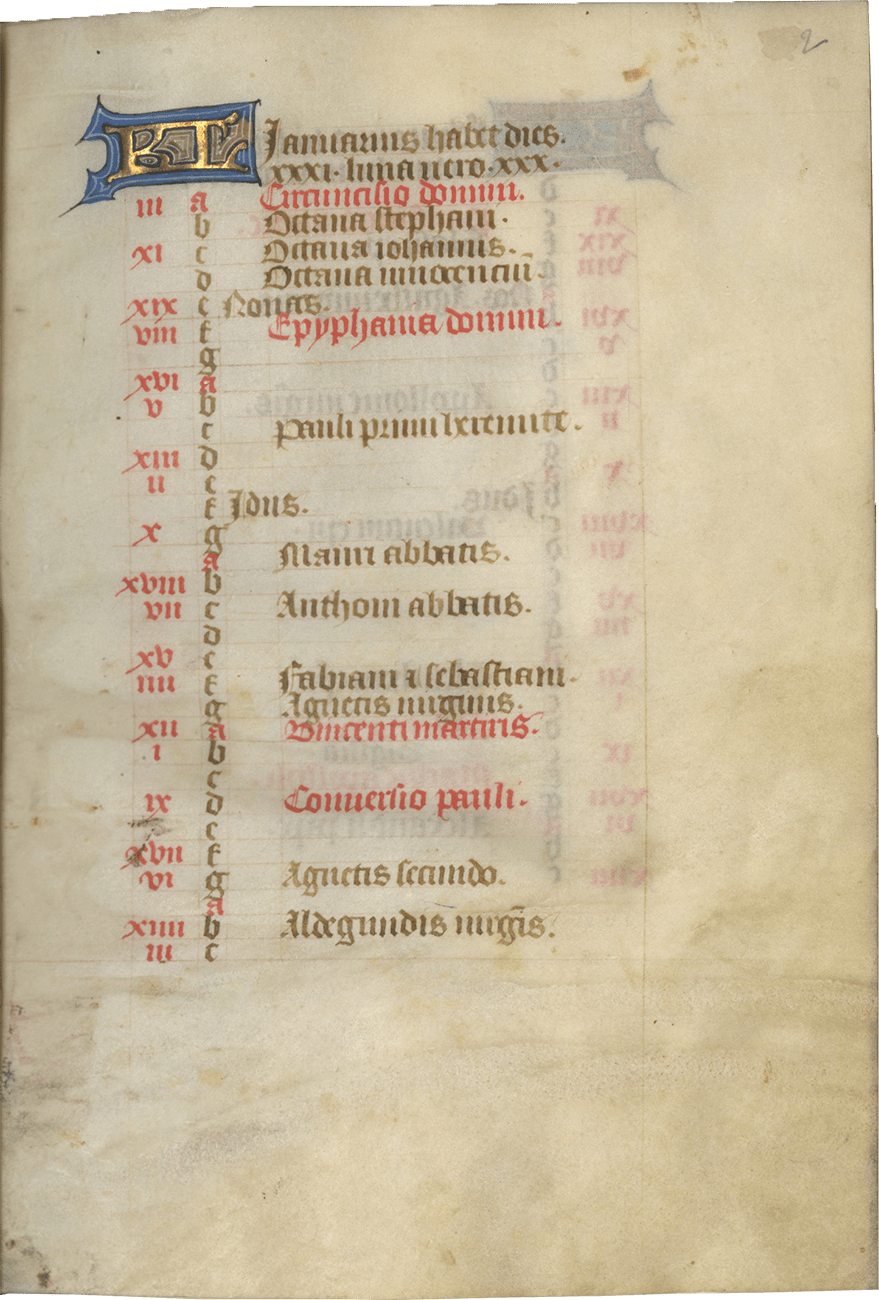 2
KL Januarius habet dies.
xxxi. luna uero. xxx.
iii a Circuncisio domini.
b Octaua stephani.
xi c Octaua iohannis.
d Octaua innocenciu.
xix e Nonas.
viii f Epyphania domini.
g
xvi a
v b
c pauli primi heremite.
xiii d
ii e
f Idus.
x g
a Mauri abbatis.
xviii b
vii c Anthoni abbatis.
d
xv e
iiii f Fabiani ⁊ sebastiani.
g Agnetis uirginis.
xii a Vincenti martiris.
i b
c
ix d Conuersio pauli.
e
xvii f
vi g Agnetis secundo.
a
xiiii b Aldegundis uirgĩs.
iii c